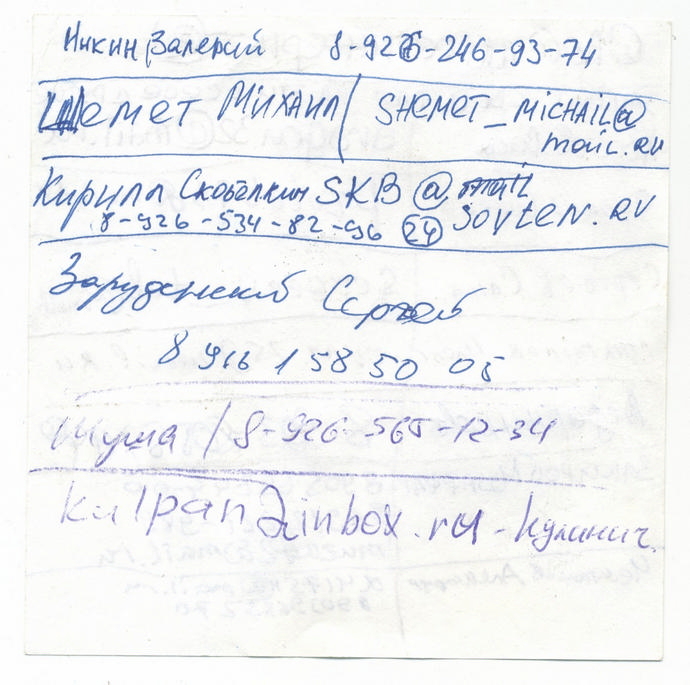 Никин Валерий 8-926-246-93-74
Шемет Михаил / SHEMET_MICHAIL@
mail.ru
Кирилл Скобелкин SKB@
8-926-534-82-96 24 SOVTEN.RU
Заруденский Сергей
8 916 158 50 05
Шуша / 8-926-565-12-34
kulpan@inbox.ru - Кулинич.